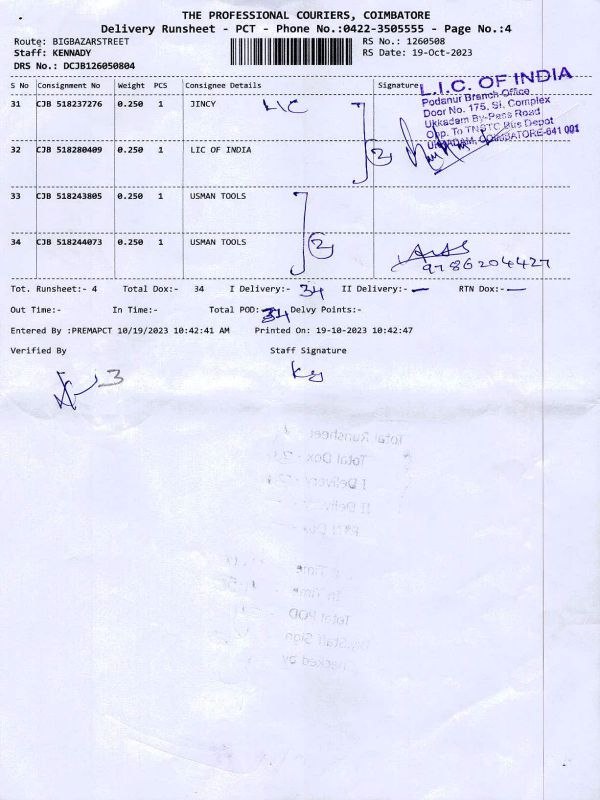 THE PROFESSIONAL COURIERS, COIMBATORE
Delivery Runsheet - PCT - Phone No.:0422-3505555 - Page No.:4
Route: BIGBAZARSTREET RS No.: 1260508
Staff: KENNADY RS Date: 19-Oct-2023
DRS No.: DCJB126050804
S No Consignment No Weight PCS Consignee Details Signature
L.I.C. OF INDIA
Podanur Branch Office
Door No. 175, SI. Complex
Ukkadam By-Pass Road
Opp. To TNSTC Bus Depot
UKKADAM, COIMBATORE-641 001
31 CJB 518237276 0.250 1 JINCY LIC
32 CJB 518280409 0.250 1 LIC OF INDIA 2
33 CJB 518243805 0.250 1 USMAN TOOLS
34 CJB 518244073 0.250 1 USMAN TOOLS 2
9786204427
Tot. Runsheet:- 4 Total Dox:- 34 I Delivery:- 34 II Delivery:- — RTN Dox:- —
Out Time:- In Time:- Total POD:- 34 Delvy Points:-
Entered By :PREMAPCT 10/19/2023 10:42:41 AM Printed On: 19-10-2023 10:42:47
Verified By Staff Signature
3
Total Runsheet
Total Dox -
I Delivery -
II Delivery -
RTN Dox -
In Time
Total POD
Staff Sign
Checked by